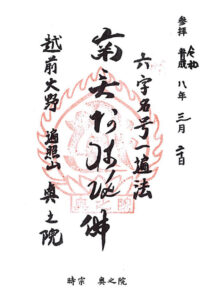 参拝
令和八年三月
六字名号一遍法
南无阿弥陀佛
越前大野 遍照山 奥之院
時宗 奥之院